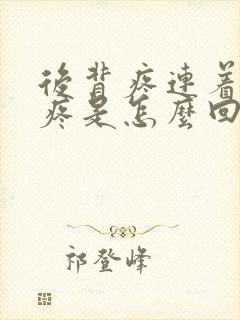 後背疼連着
疼是怎麼回
祁登峰